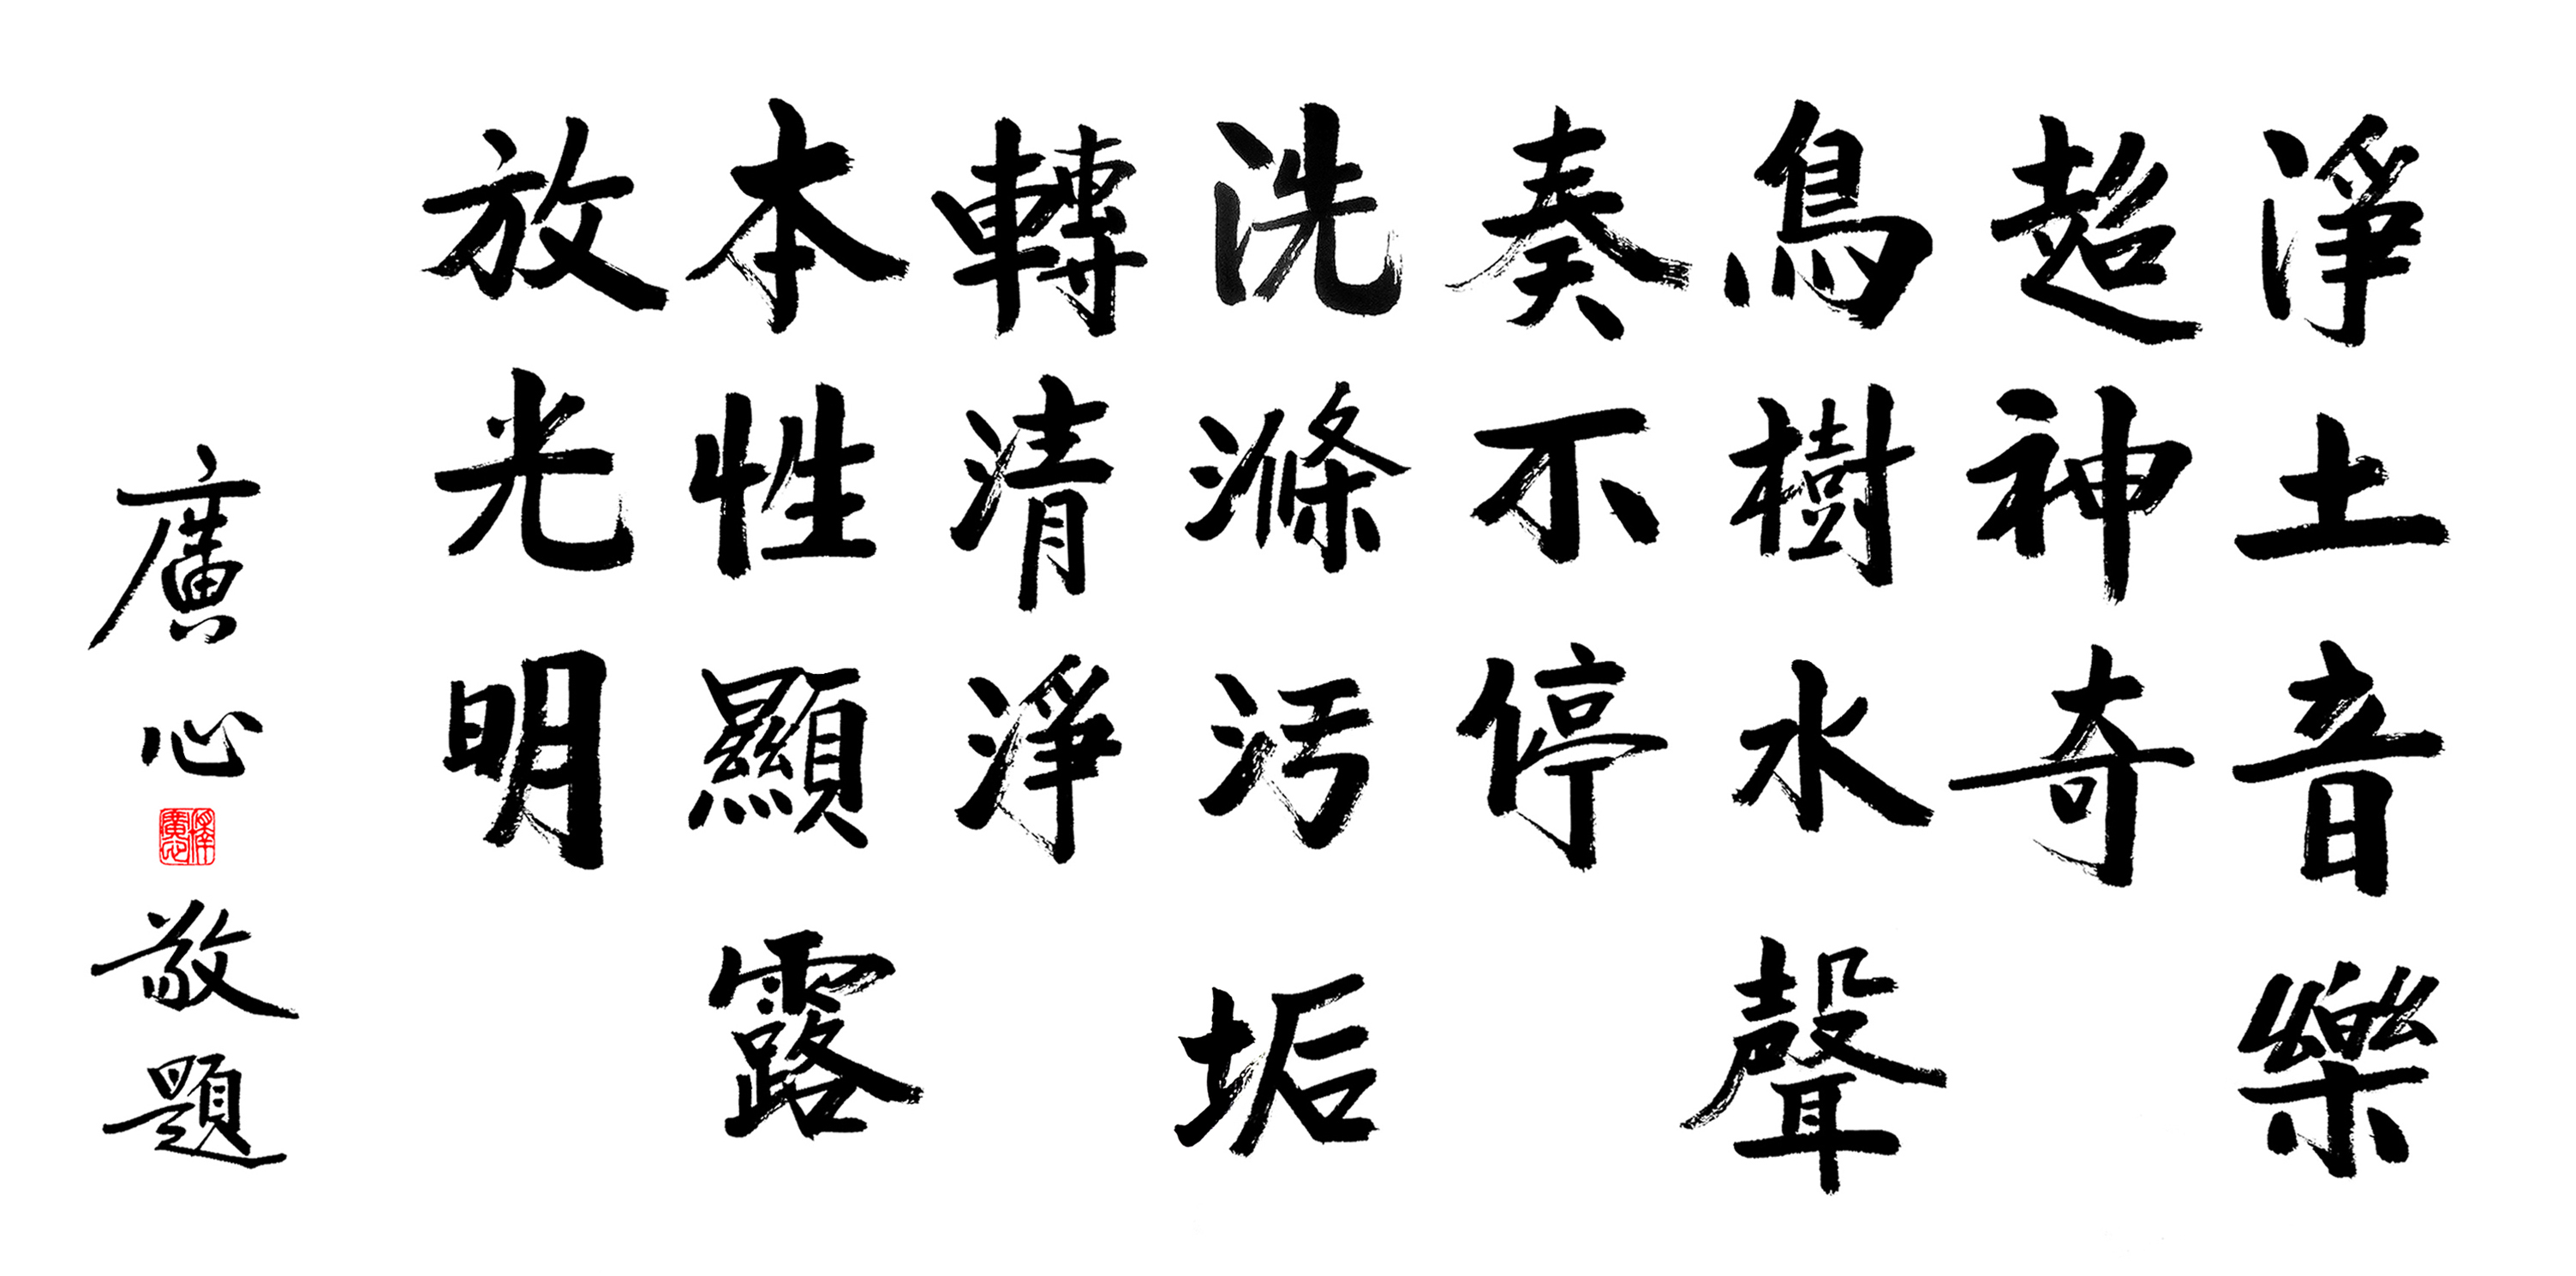 淨土音樂
超神奇
鳥樹水聲
奏不停
洗滌污垢
轉清淨
本性顯露
放光明
廣心敬題